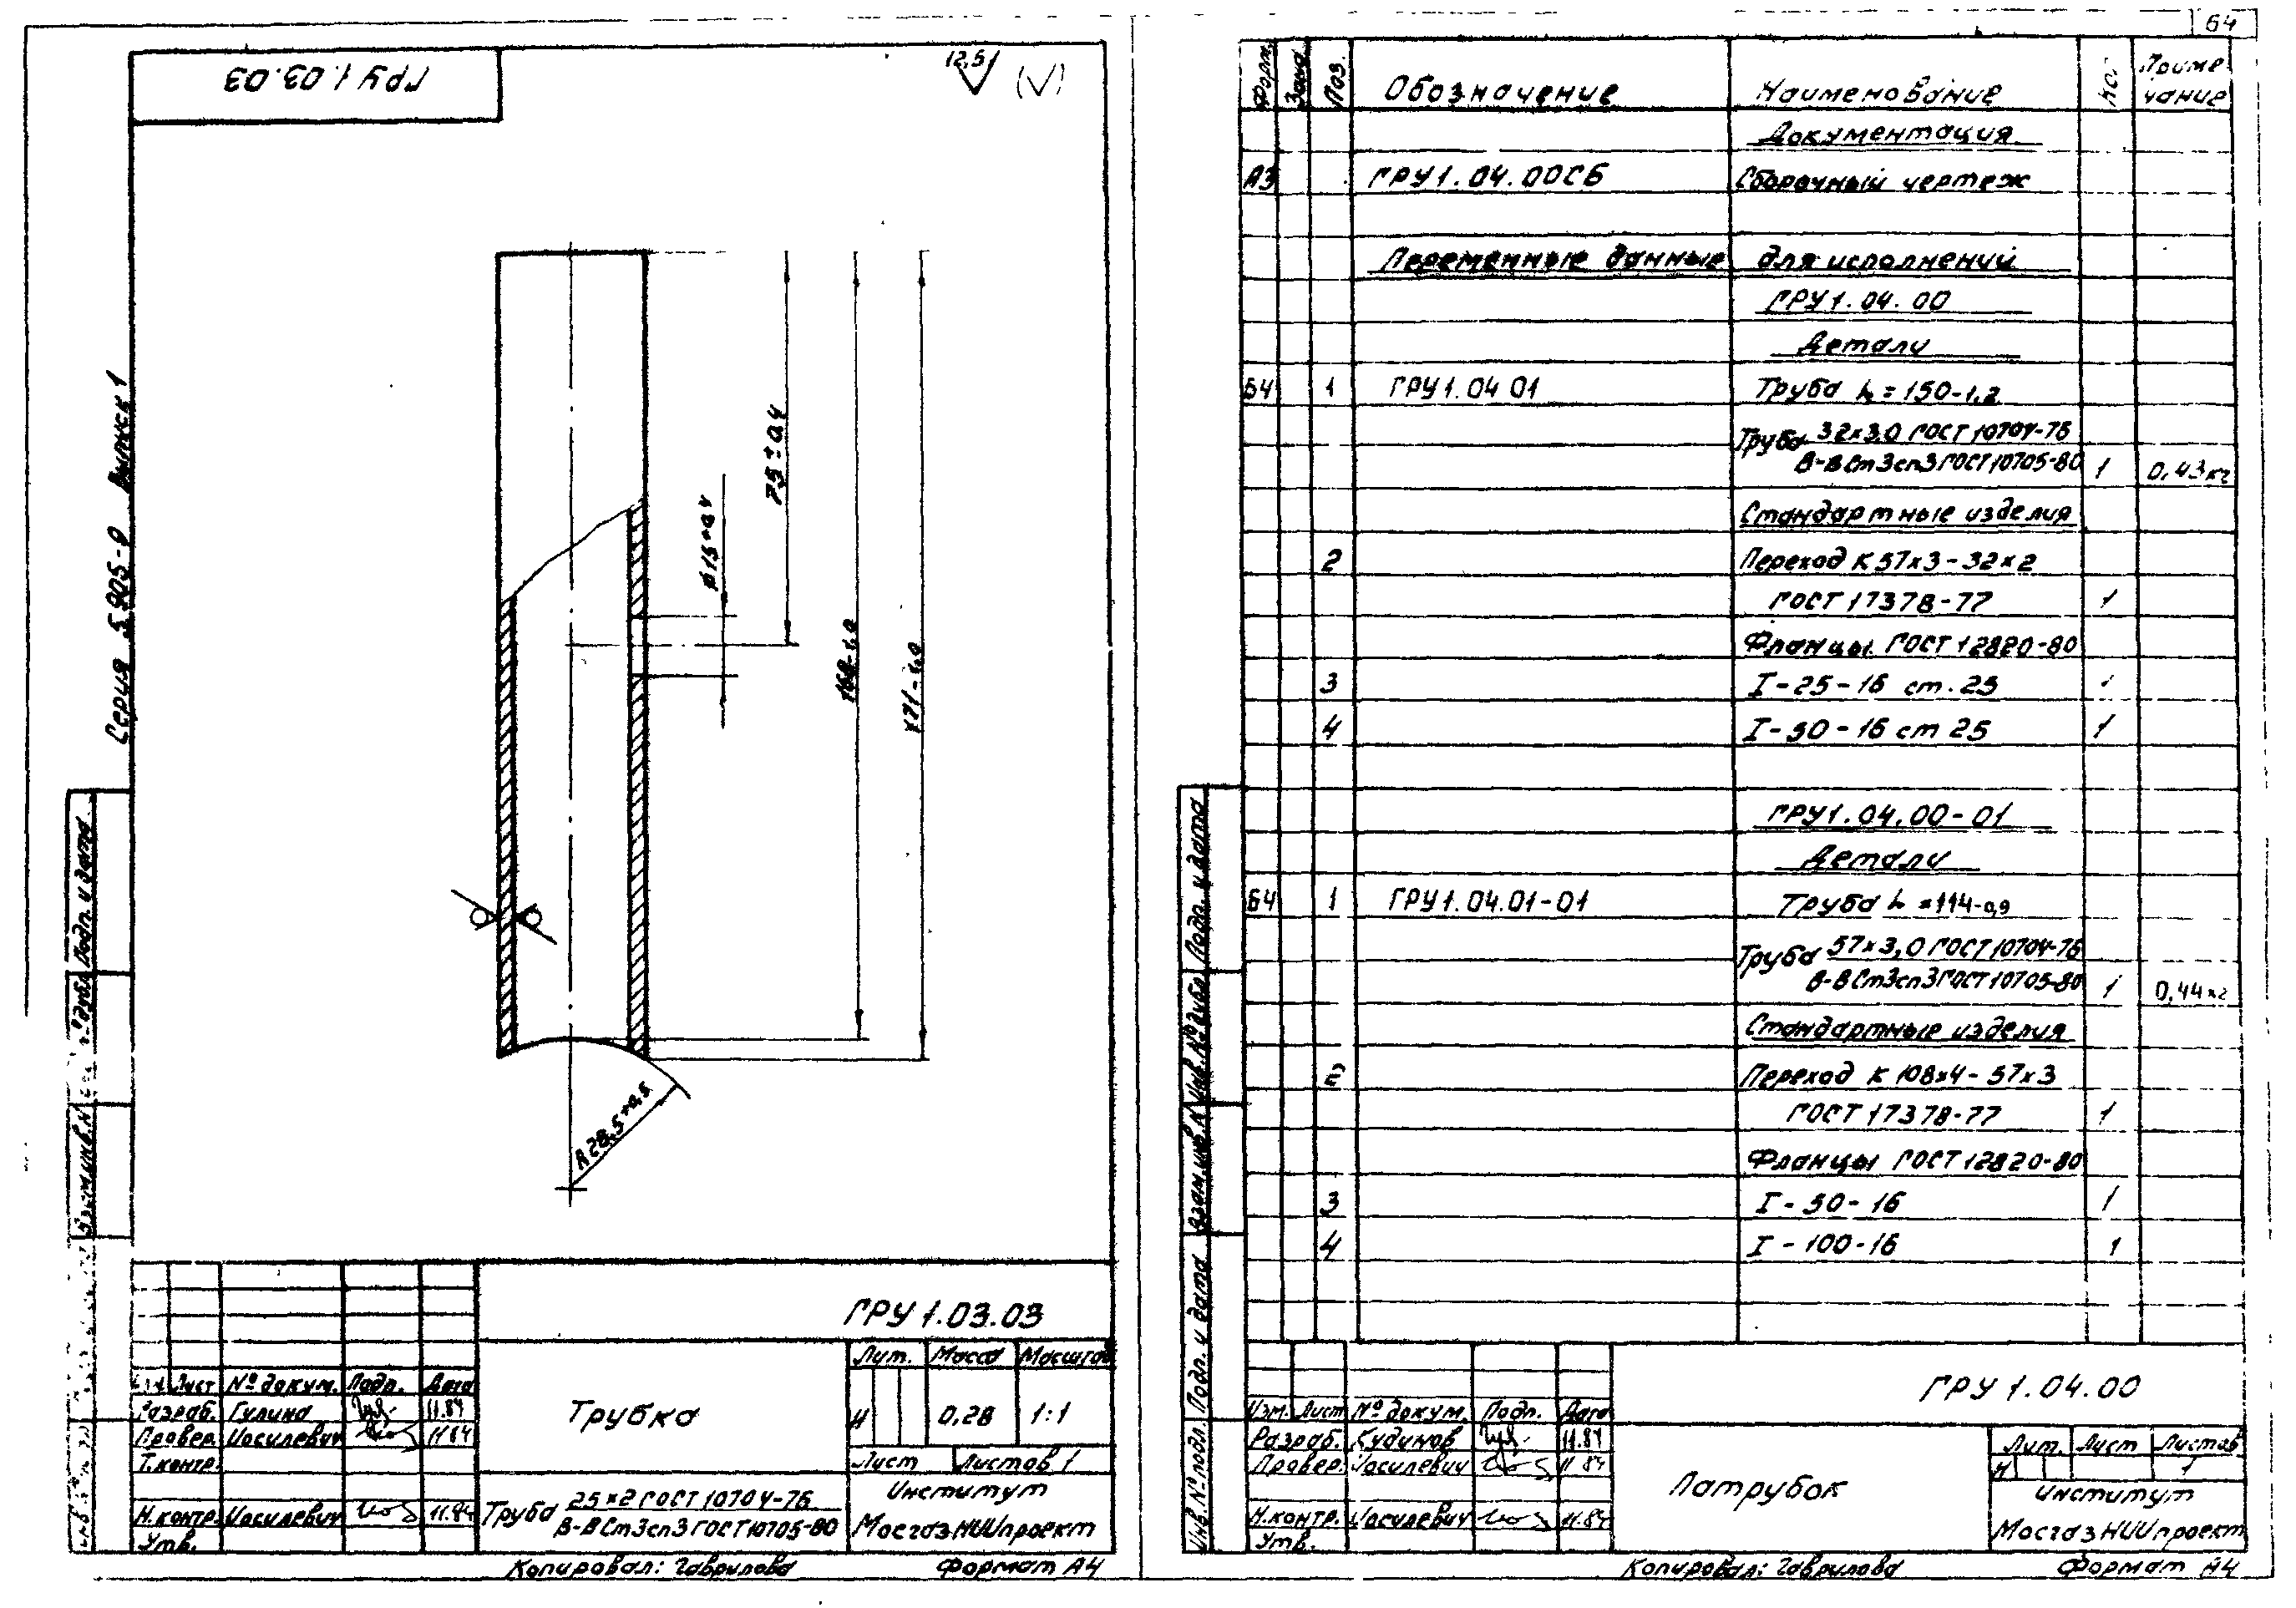 64
ГРУ 1.03.03
12,5
(√)
Серия 5.905-   Выпуск 1
75±0,4
⌀15+0,4
-1,0
-1,0
R28,5+0,5
Подп. и дата
№ дубл
Взам.инв.N
ГРУ 1.03.03
Лит. Масса Масштаб
Лист № докум. Подп. Дата
Разраб. Гулина 11.84
Провер. Иосилевич 11.84
Т.контр.
Н.контр. Иосилевич 11.84
Утв.
Трубка
И 0,28 1:1
Лист Листов 1
Труба 25×2 ГОСТ 10704-76
В-ВСт3сп3 ГОСТ 10705-80
Институт
МосгазНИИпроект
Копировал: Гаврилова Формат А4
Форм. Зона Поз. Обозначение Наименование Кол Приме
чание
Документация
А3 ГРУ1.04.00СБ Сборочный чертеж
Переменные данные для исполнений
ГРУ1.04.00
Детали
Б4 1 ГРУ1.04 01 Труба L=150-1,2
Труба 32×3,0 ГОСТ 10704-76
В-ВСт3сп3 ГОСТ 10705-80 1 0,43кг
Стандартные изделия
2 Переход К 57×3-32×2
ГОСТ 17378-77 1
Фланцы ГОСТ 12820-80
3 I-25-16 ст. 25 1
4 I-50-16 ст 25 1
ГРУ1.04.00-01
Детали
Б4 1 ГРУ1.04.01-01 Труба L=114-0,9
Труба 57×3,0 ГОСТ 10704-76
В-ВСт3сп3 ГОСТ 10705-80 1 0,44кг
Стандартные изделия
2 Переход К 108×4-57×3
ГОСТ 17378-77 1
Фланцы ГОСТ 12820-80
3 I-50-16 1
4 I-100-16 1
Подп. и дата
Инв.№ дубл
Взам.инв.N
Подп. и дата
Инв.№ подл.
ГРУ 1.04.00
Изм. Лист № докум. Подп. Дата
Разраб. Кудинов 11.84
Провер. Иосилевич 11 84
Н.контр. Иосилевич 11.84
Утв.
Патрубок
Лит. Лист Листов
И 1
Институт
МосгазНИИпроект
Копировал: Гаврилова Формат А4